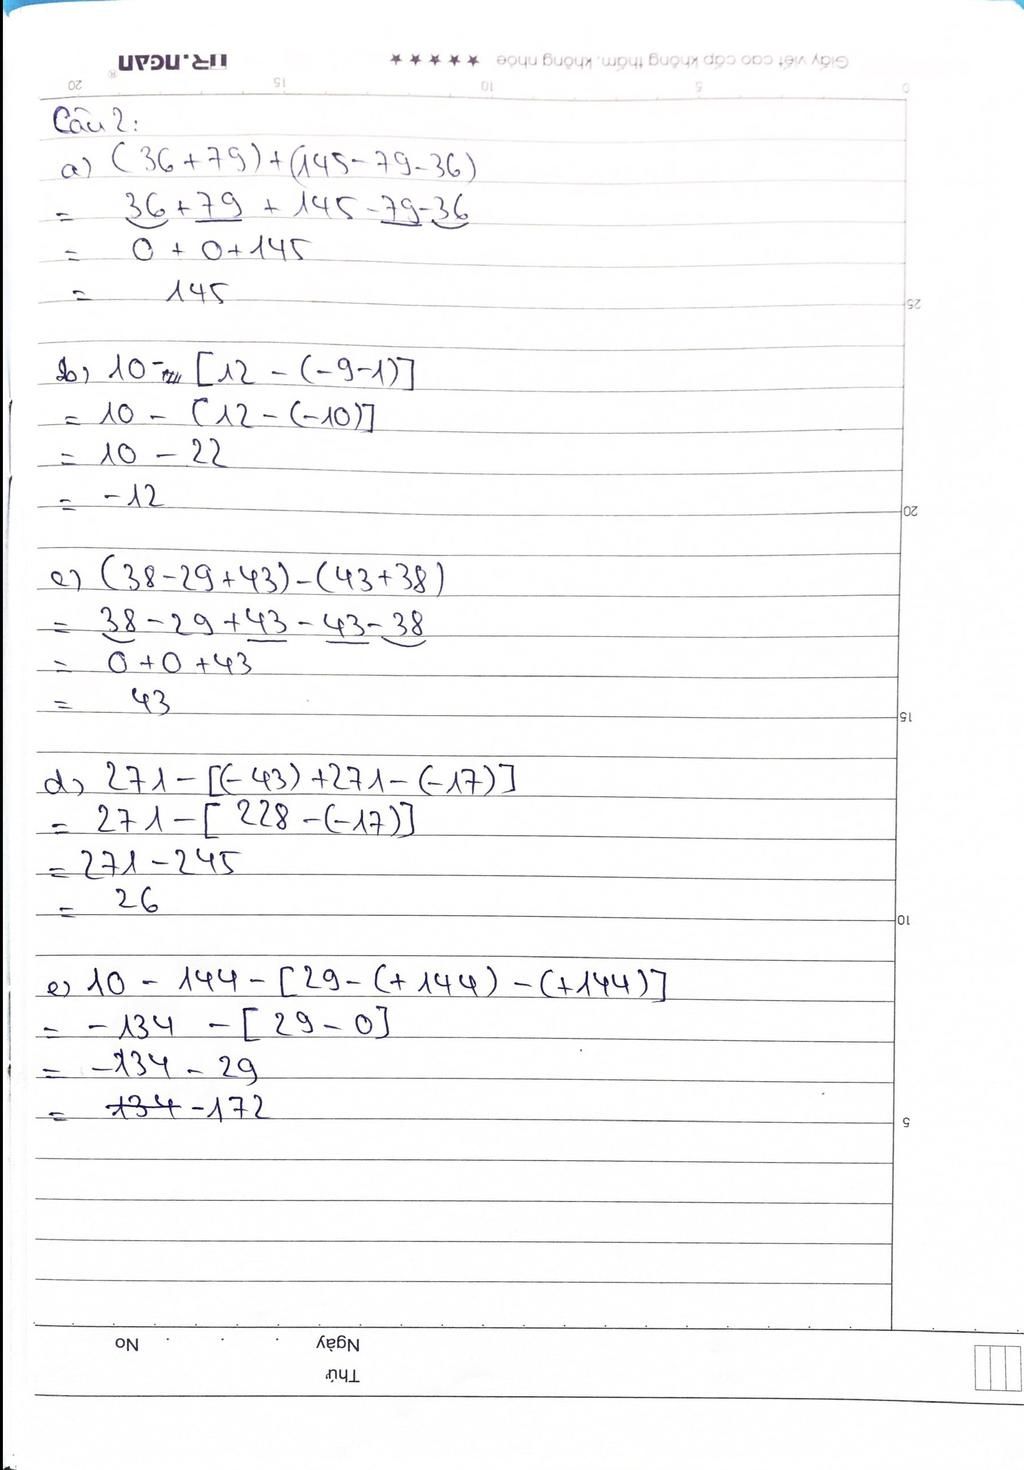 Giấy viết cao cấp không thấm, không nhòe ★★★★★
MR.NGAN®
0 5 10 15 20
Câu 2:
a) (36+79)+(145-79-36)
= 36+79 + 145-79-36
= 0 + 0+145
= 145
25
b) 10- [12 - (-9-1)]
= 10 - [12-(-10)]
= 10 - 22
= -12
20
c) (38-29+43)-(43+38)
= 38-29+43-43-38
= 0+0+43
= 43
15
d) 271-[(-43)+271-(-17)]
= 271-[228-(-17)]
= 271-245
= 26
10
e) 10 - 144-[29-(+144)-(+144)]
= -134 -[29-0]
= -134 - 29
= 134 -172
5
Ngày
No
Thứ